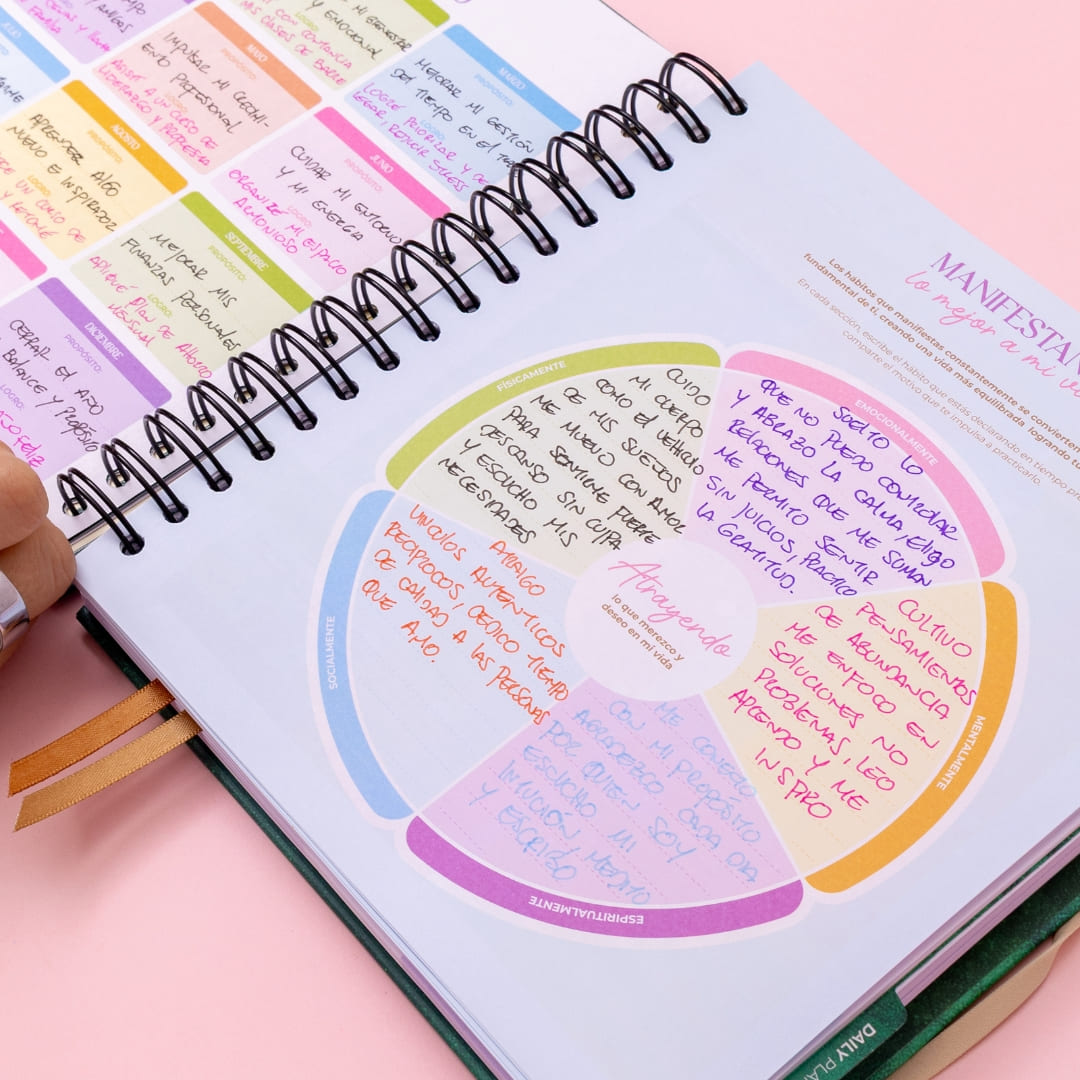 MI BIENESTAR
Y EMOCIONAL
LOGRO:
CON CONSTANCIA
MIS CLASES DE BARRE
MAYO
PROPÓSITO:
IMPULSAR MI CRECIMI-
ENTO PROFESIONAL
LOGRO:
ASISTÍ A UN CURSO DE
LIDERAZGO Y
MARZO
PROPÓSITO:
MEJORAR MI GESTIÓN
DEL TIEMPO EN EL
LOGRO:
LOGRÉ PRIORIZAR Y DE
LEGAR, REDUCIR STRESS
AGOSTO
PROPÓSITO:
APRENDER ALGO
NUEVO E INSPIRADOR
LOGRO:
UN CURSO DE
JUNIO
PROPÓSITO:
CUIDAR MI ENTORNO
Y MI ENERGÍA
LOGRO:
ORGANIZÉ MI ESPACIO
ARMONIOSO
SEPTIEMBRE
PROPÓSITO:
MEJORAR MIS
FINANZAS PERSONALES
LOGRO:
APLIQUÉ PLAN DE AHORRO
MENSUAL
DICIEMBRE
PROPÓSITO:
CERRAR EL AÑO
BALANCE Y PROPÓSITO
LOGRO:
FELIZ
MANIFESTAN
Lo mejor a mi
Los hábitos que manifiestas constantemente se convierten
fundamental de ti, creando una vida más equilibrada logrando
En cada sección, escribe el hábito que estás declarando en tiempo
comparte el motivo que te impulsa a practicarlo.
FÍSICAMENTE
CUIDO
MI CUERPO
COMO EL VEHÍCULO
DE MIS SUEÑOS
ME MUEVO CON AMOR
PARA SENTIRME FUERTE
DESCANSO SIN CULPA
Y ESCUCHO MIS
NECESIDADES
EMOCIONALMENTE
SUELTO LO
QUE NO PUEDO CONTROLAR
Y ABRAZO LA CALMA, Eligo
RELACIONES QUE ME SUMAN
ME PERMITO SENTIR
SIN JUICIOS, PRACTICO
LA GRATITUD.
MENTALMENTE
CULTIVO
PENSAMIENTOS
DE ABUNDANCIA
ME ENFOCO EN
SOLUCIONES NO
PROBLEMAS, LEO
APRENDO Y ME
INSPIRO
ESPIRITUALMENTE
ME CONECTO
CON MI PROPÓSITO
AGRADEZCO CADA DIA
POR QUIEN SOY
ESCUCHO MI
INTUCIÓN, MEDITO
Y ESCRIBO
SOCIALMENTE
ATRAIGO
VINCULOS AUTENTICOS
RECIPROCOS, DEDICO TIEMPO
DE CALIDAD A LAS PERSONAS
QUE AMO.
Atrayendo
lo que merezco y
deseo en mi vida
DAILY PLAN